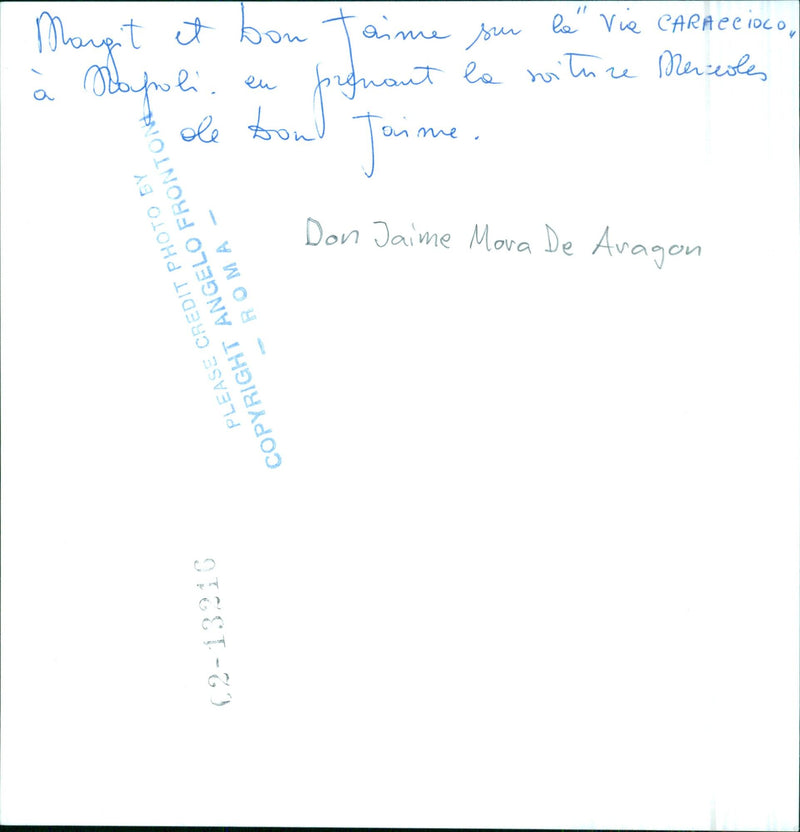 Margit et Don Jaime sur la "Via CARACCIOLO"
à Napoli. en prenant la voiture Mercedes
de Don Jaime.
PLEASE CREDIT PHOTO BY
COPYRIGHT ANGELO FRONTONI
- ROMA -
Don Jaime Mora De Aragon
62-13216